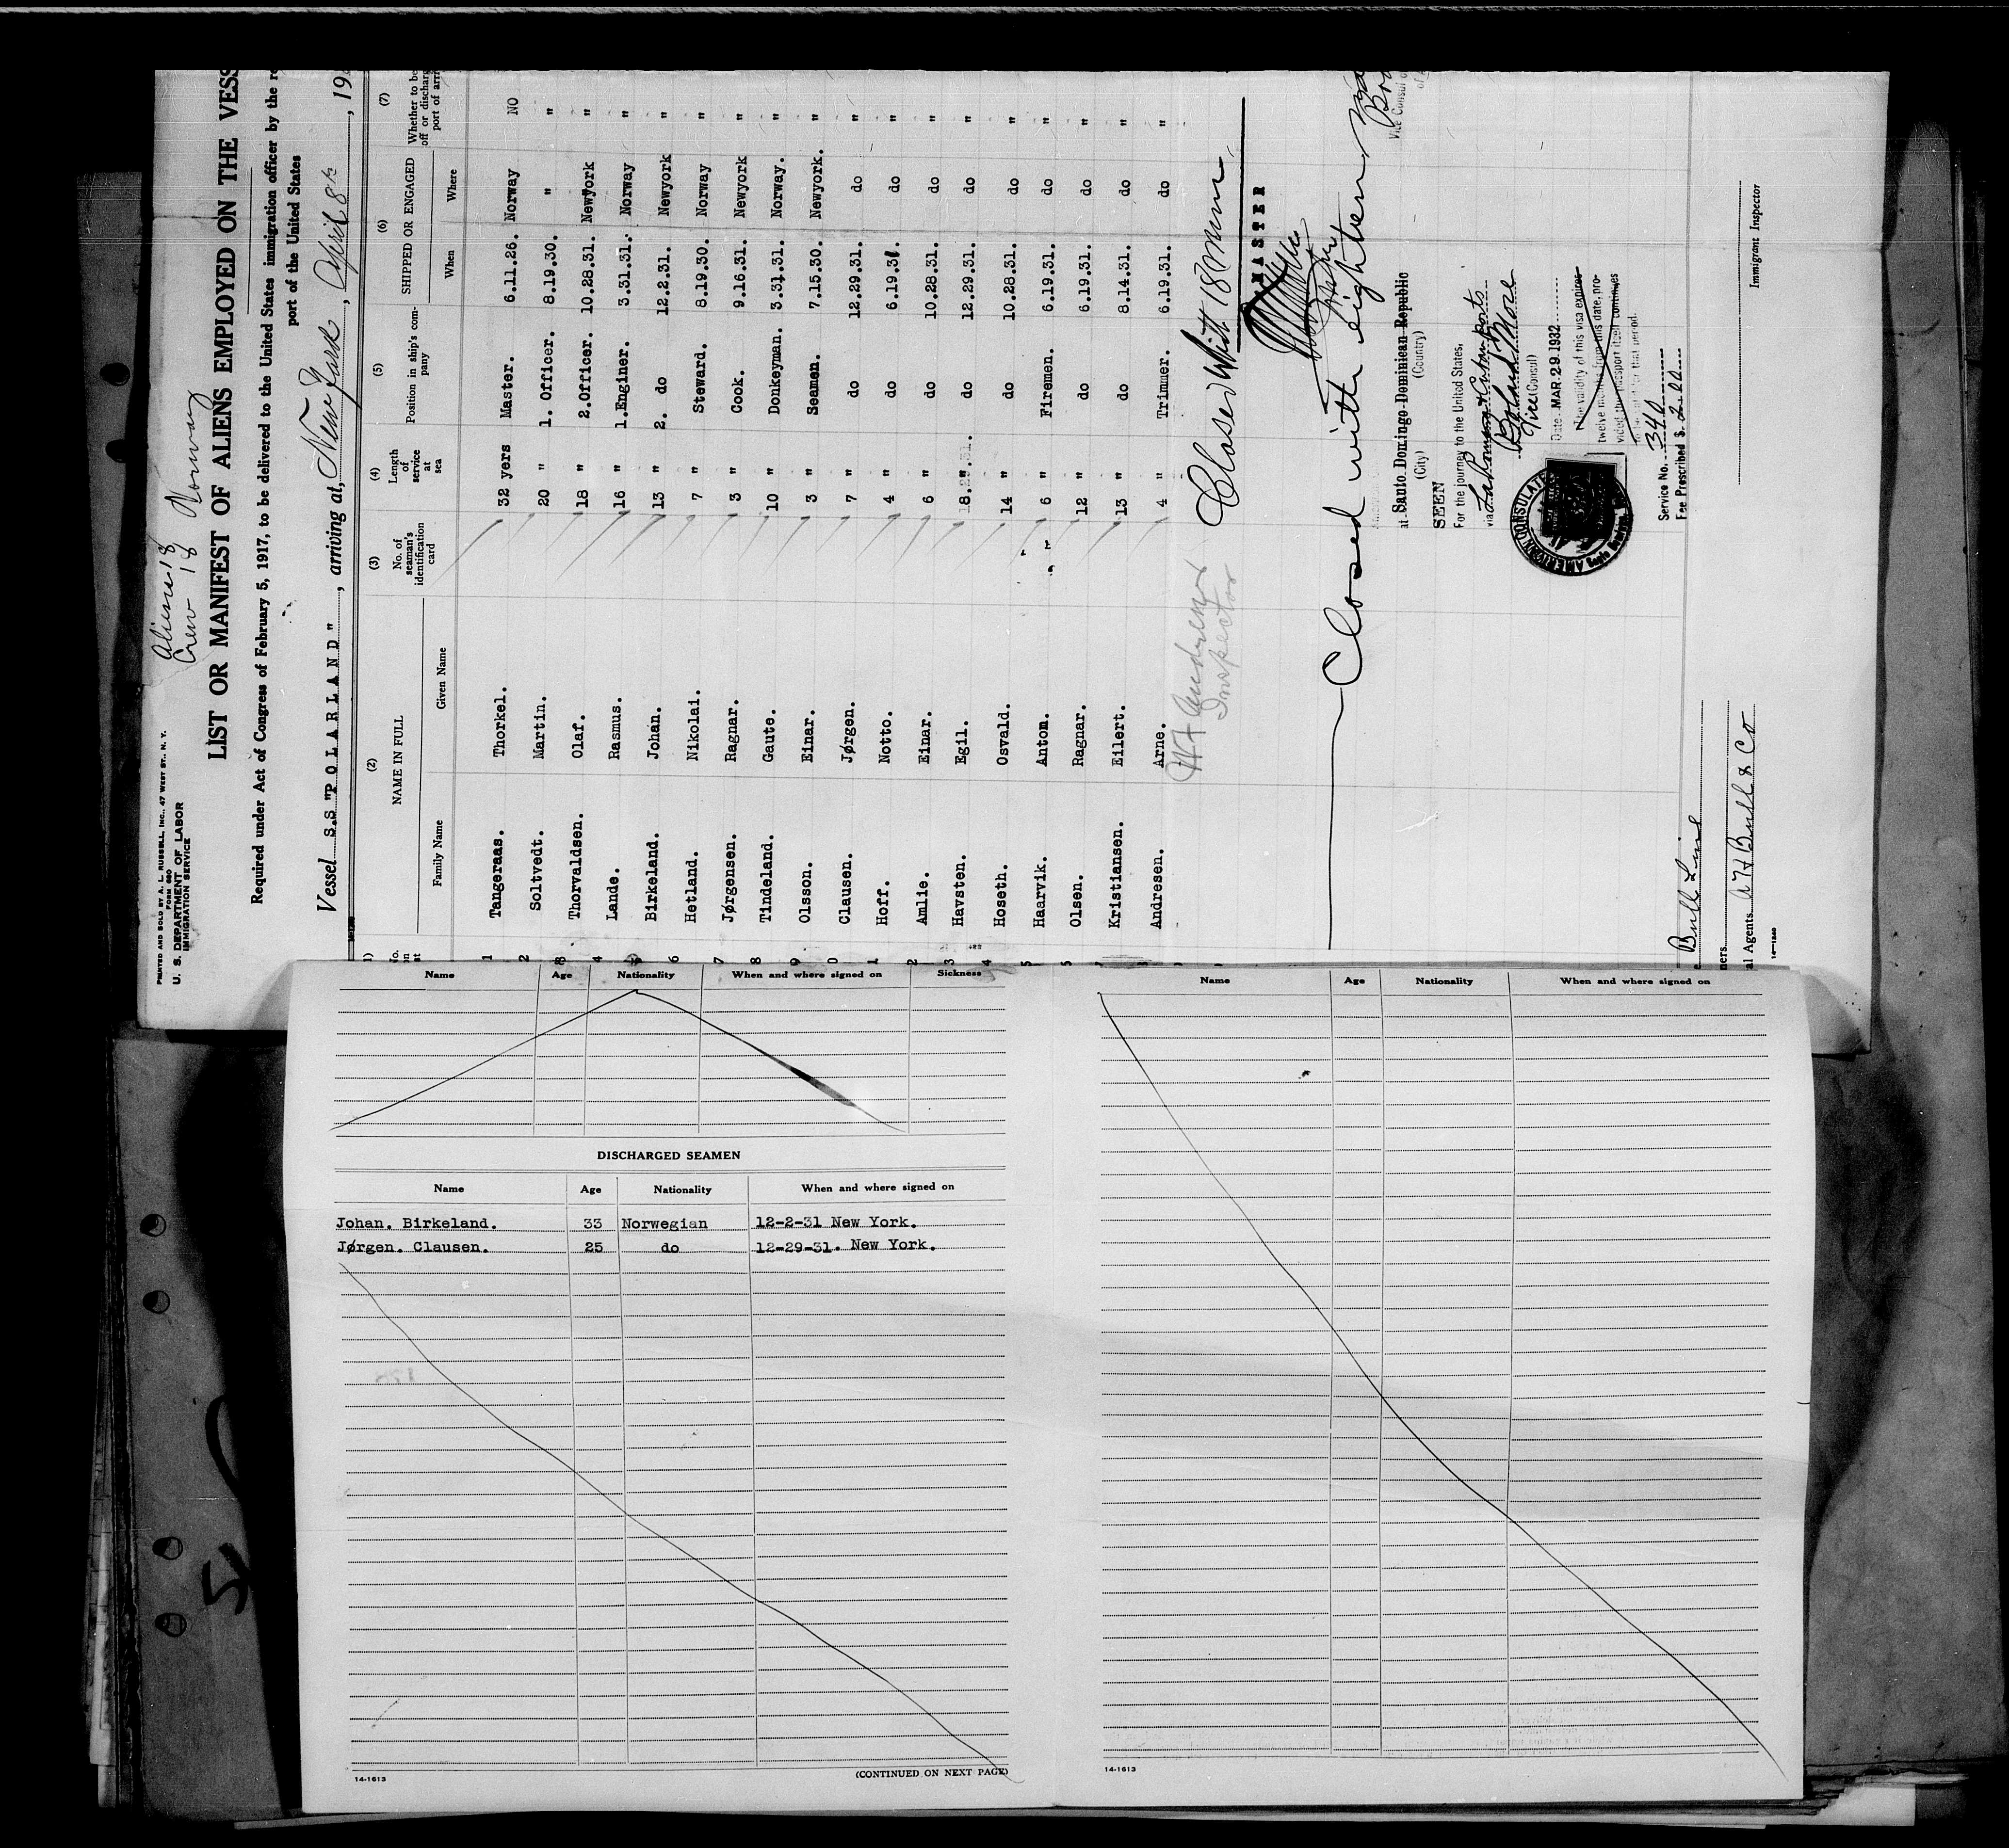 PRINTED AND SOLD BY A. L. RUSSELL, INC., 47 WEST ST., N. Y.
FORM 680
U. S. DEPARTMENT OF LABOR
IMMIGRATION SERVICE
Aliens 18
Crew 18 Norway
LIST OR MANIFEST OF ALIENS EMPLOYED ON THE VESS
Required under Act of Congress of February 5, 1917, to be delivered to the United States immigration officer by the re
port of the United States
Vessel S.S "POLARLAND", arriving at, New York, April 8th, 19
(2) (3) (4) (5) (6) (7)
NAME IN FULL No. of seaman's identification card Length of service at sea Position in ship's company SHIPPED OR ENGAGED Whether to be off or discharg port of arri
Family Name Given Name When Where
1 Tangeraas. Thorkel. 32 yers Master. 6.11.26. Norway NO
2 Soltvedt. Martin. 20 " 1. Officer. 8.19.30. " "
3 Thorvaldsen. Olaf. 18 " 2.Officer. 10.28.31. Newyork "
4 Lande. Rasmus. 16 " 1.Enginer. 3.31.31. Norway "
5 Birkeland. Johan. 13 " 2. do 12.2.31. Newyork "
6 Hetland. Nikolai. 7 " Steward. 8.19.30. Norway "
7 Jørgensen. Ragnar. 3 " Cook. 9.16.31. Newyork "
8 Tindeland. Gaute. 10 " Donkeyman. 3.31.31. Norway. "
9 Olsson. Einar. 3 " Seamen. 7.15.30. Newyork. "
0 Clausen. Jørgen. 7 " do 12.29.31. do "
1 Hoff. Notto. 4 " do 6.19.31. do "
2 Amlie. Einar. 6 " do 10.28.31. do "
3 Havsten. Egil. 18. " do 12.29.31. do "
4 Hoseth. Osvald. 14 " do 10.28.31. do "
5 Haarvik. Antom. 6 " Firemen. 6.19.31. do "
Olsen. Ragnar. 12 " do 6.19.31. do "
Kristiansen. Eilert. 13 " do 8.14.31. do "
Andresen. Arne. 4 " Trimmer. 6.19.31. do "
Inspector
Closed With 18 Men
MASTER
Closed with eighteen
Vice Consul
at Santo Domingo Dominican Republic
(City) (Country)
SEEN
For the journey to the United States,
via
Vice Consul
Date MAR 29 1932
The validity of this visa expires
twelve months from this date, pro-
vided the passport itself continues
to be valid for that period.
AMERICAN CONSULATE
Service No. 340
Fee Prescribed $ 2.00
Bull Line
ners
al Agents A H Bull & Co
Immigrant Inspector
14-1240
Name Age Nationality When and where signed on Sickness
DISCHARGED SEAMEN
Name Age Nationality When and where signed on
Johan. Birkeland. 33 Norwegian 12-2-31 New York.
Jørgen. Clausen. 25 do 12-29-31. New York.
14-1613
(CONTINUED ON NEXT PAGE)
Name Age Nationality When and where signed on
14-1613
5